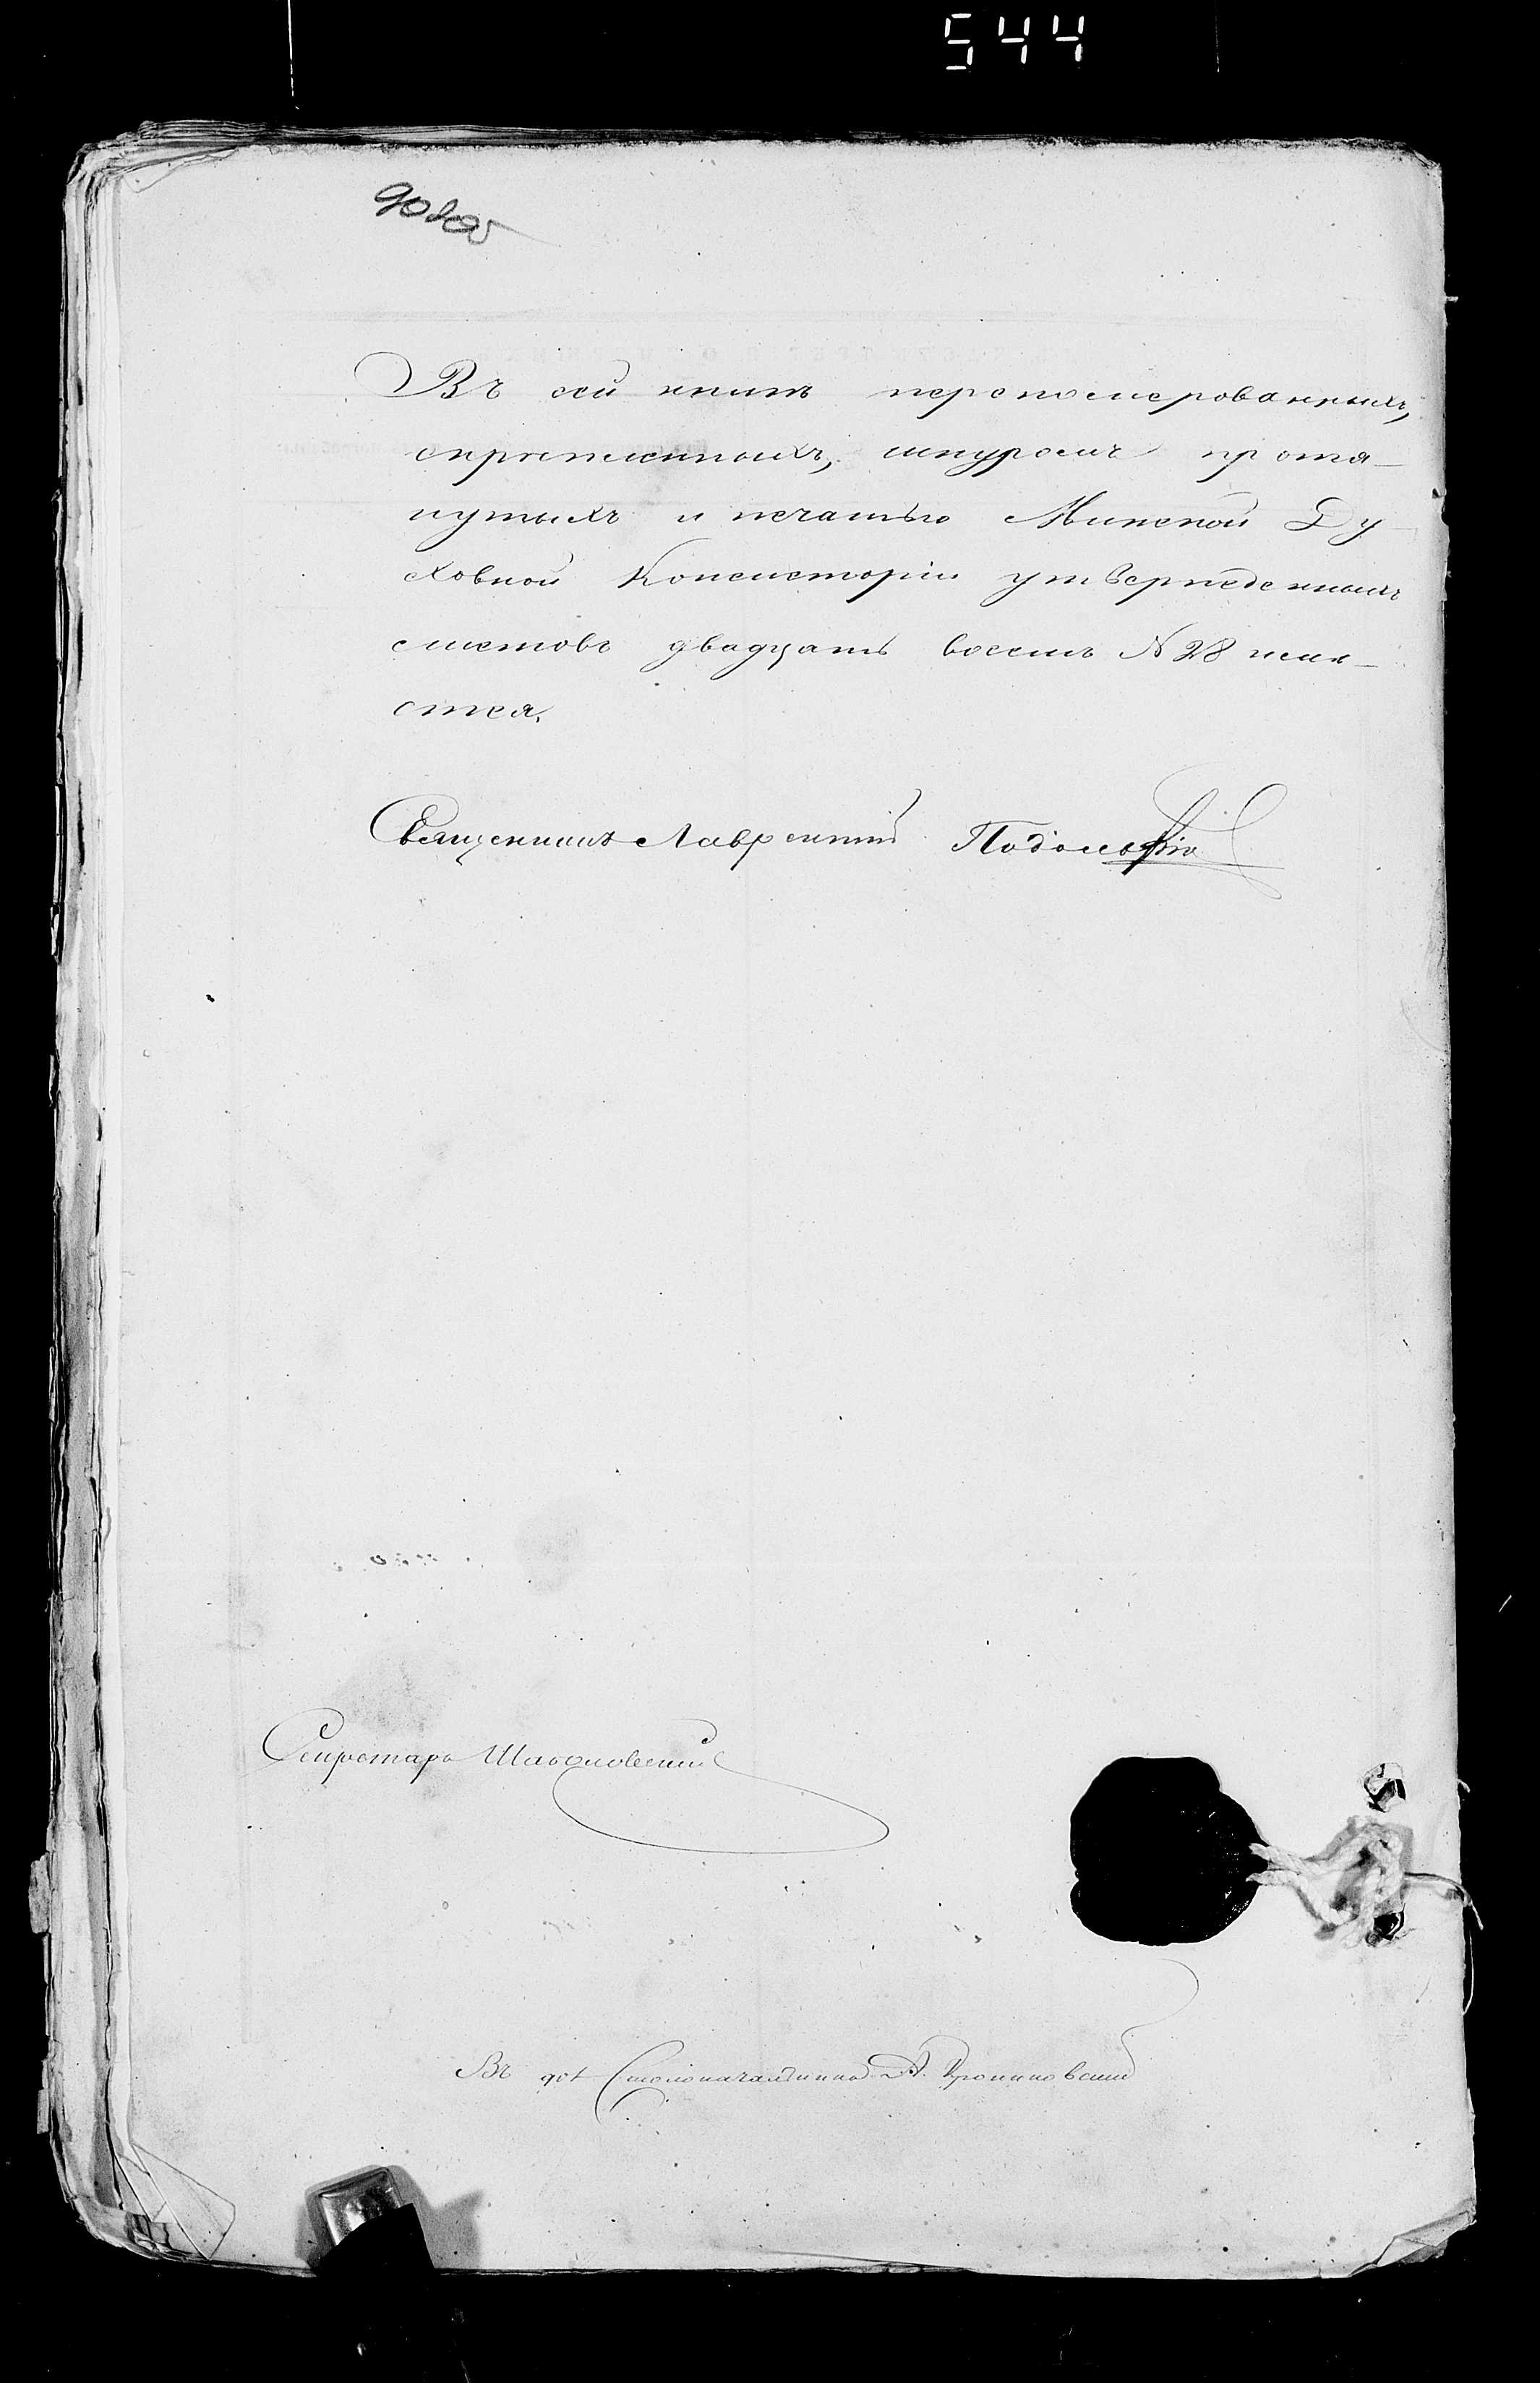 544
Въ сей книгѣ перономерованныхъ,
скрѣпленныхъ, шнуромъ протя-
нутыхъ и печатью Минской Ду-
ховной Консисторіи утвержденныхъ
листовъ двадцать восемь № 28 чис-
лится.
Священникъ Лаврентій
Секретарь
Въ дол. Столоначальника А.